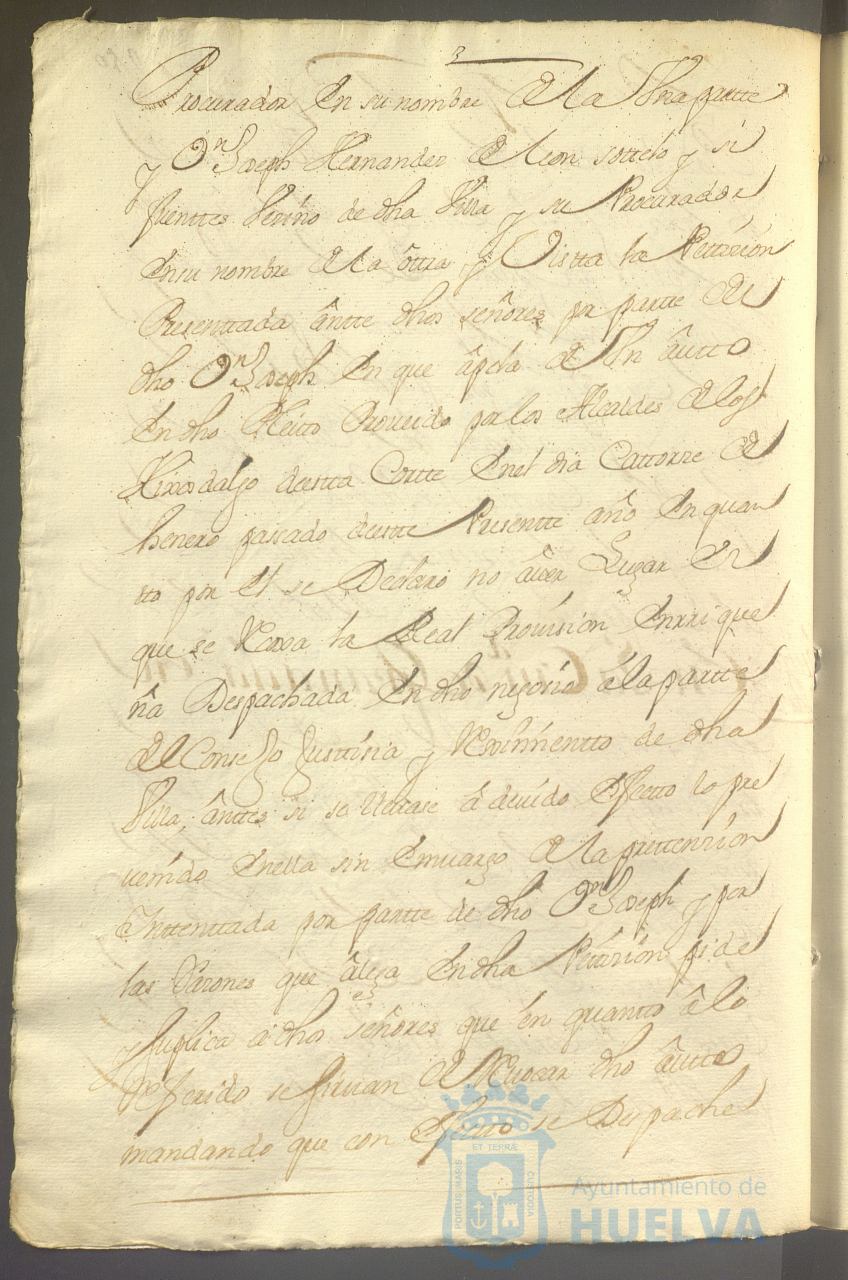 3
Procurador En su nombre De la Una partte
y Dn Joseph Hernandez De leon sottelo y si
fuenttes Vezino de dha Villa y su Procurador
En su nombre De la ôttra, y Vistta la Pettizion
Presenttada ântte dhos señores por partte Del
dho Dn Joseph En que âpela De Un âutto
En dho Pleitto Proveido por los Alcaldes De los
Hixosdalgo de estta Cortte En el dia Cattorze De
henero passado de estte Presentte año En quan
tto por El se Declaro no âver Lugar En
que se Recoxa la Real Provision Enrrique
ña Despachada En dho negozio â la partte
Del Consejo Justtizia y Reximientto de dha
Villa, ânttes si se llevase â devido Efectto lo pre
venido En ella sin Emvargo De la prettenzion
Inttenttada por partte de dho Dn Joseph y por
las Razones que âlega En dha Pettizion pide
y suplica â dhos señores que en quantto â lo
Referido se sirvan De Revocar dho âutto
mandando que con Efectto se Despache
ET TERRÆ
PORTUS MARIS
CUSTODIA
Ayuntamiento de
HUELVA